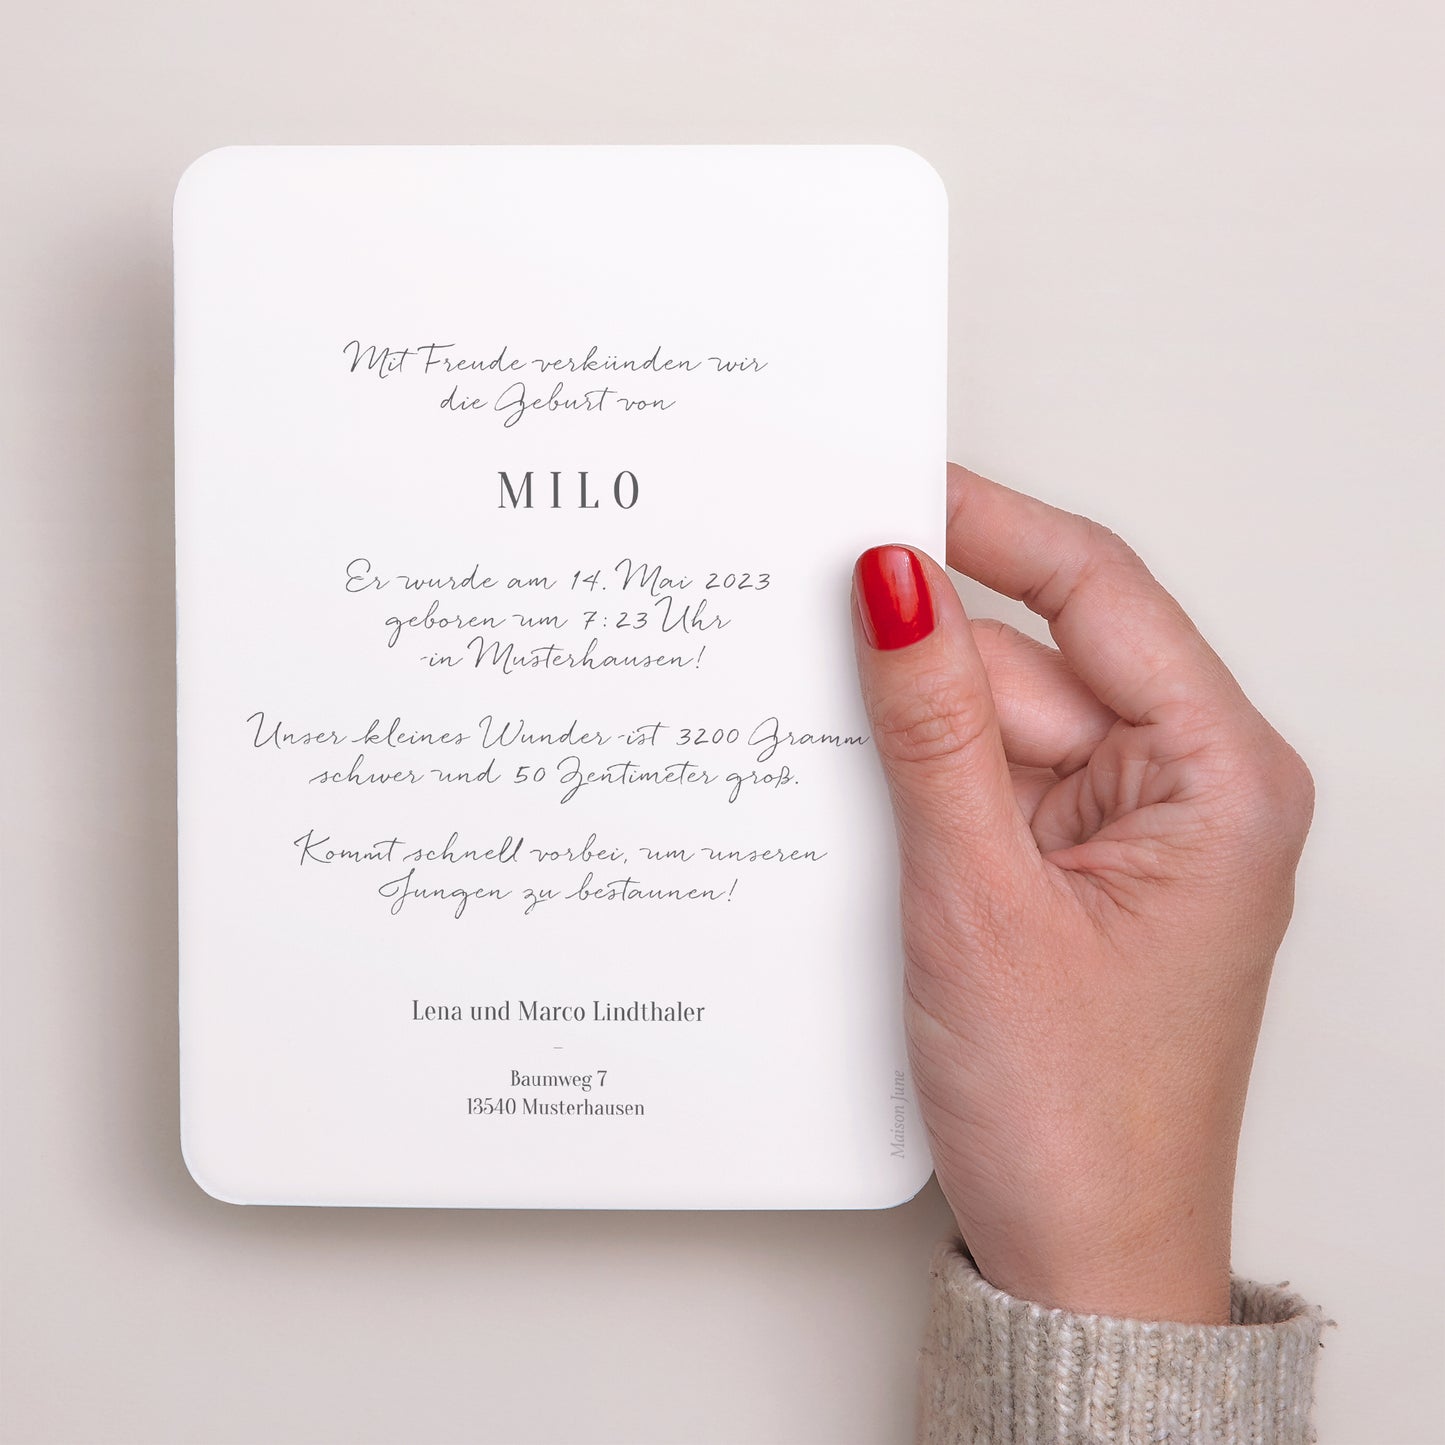 Mit Freude verkünden wir
die Geburt von
MILO
Er wurde am 14. Mai 2023
geboren um 7:23 Uhr
in Musterhausen!
Unser kleines Wunder ist 3200 Gramm
schwer und 50 Zentimeter groß.
Kommt schnell vorbei, um unseren
Jungen zu bestaunen!
Lena und Marco Lindthaler
–
Baumweg 7
13540 Musterhausen
Maison June